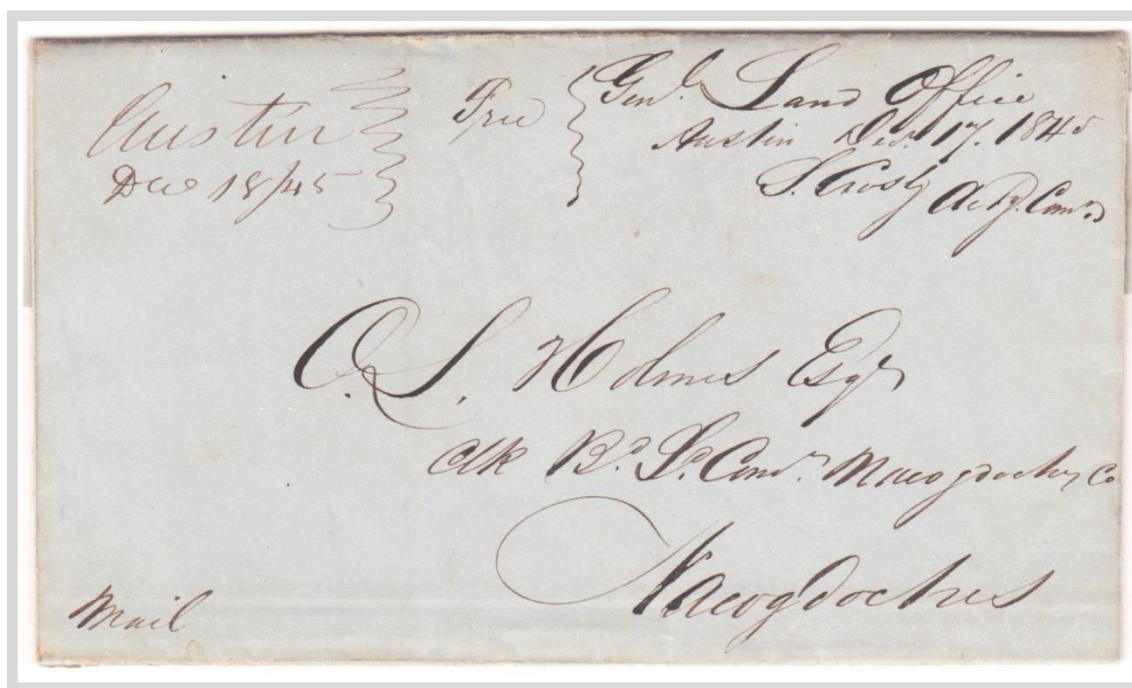 Austin
Dec 18/45
Free
Genl. Land Office
Austin Decr. 17. 1845
S. Crosby Actg. Comr.
O. L. Holmes Esqr
Clk Bd. Ld. Comrs. Nacogdoches Co
Nacogdoches
Mail